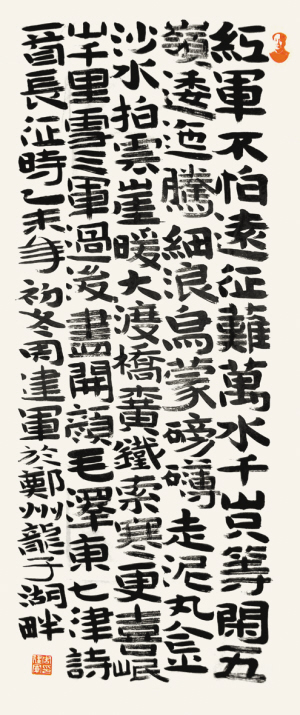 紅軍不怕遠征難萬水千山只等閑五
嶺逶迤騰細浪烏蒙磅礴走泥丸金
沙水拍雲崖暖大渡橋橫鐵索寒更喜岷
山千里雪三軍過後盡開顏毛澤東七津詩
一首長征時乙未年初冬周建軍於鄭州龍子湖畔